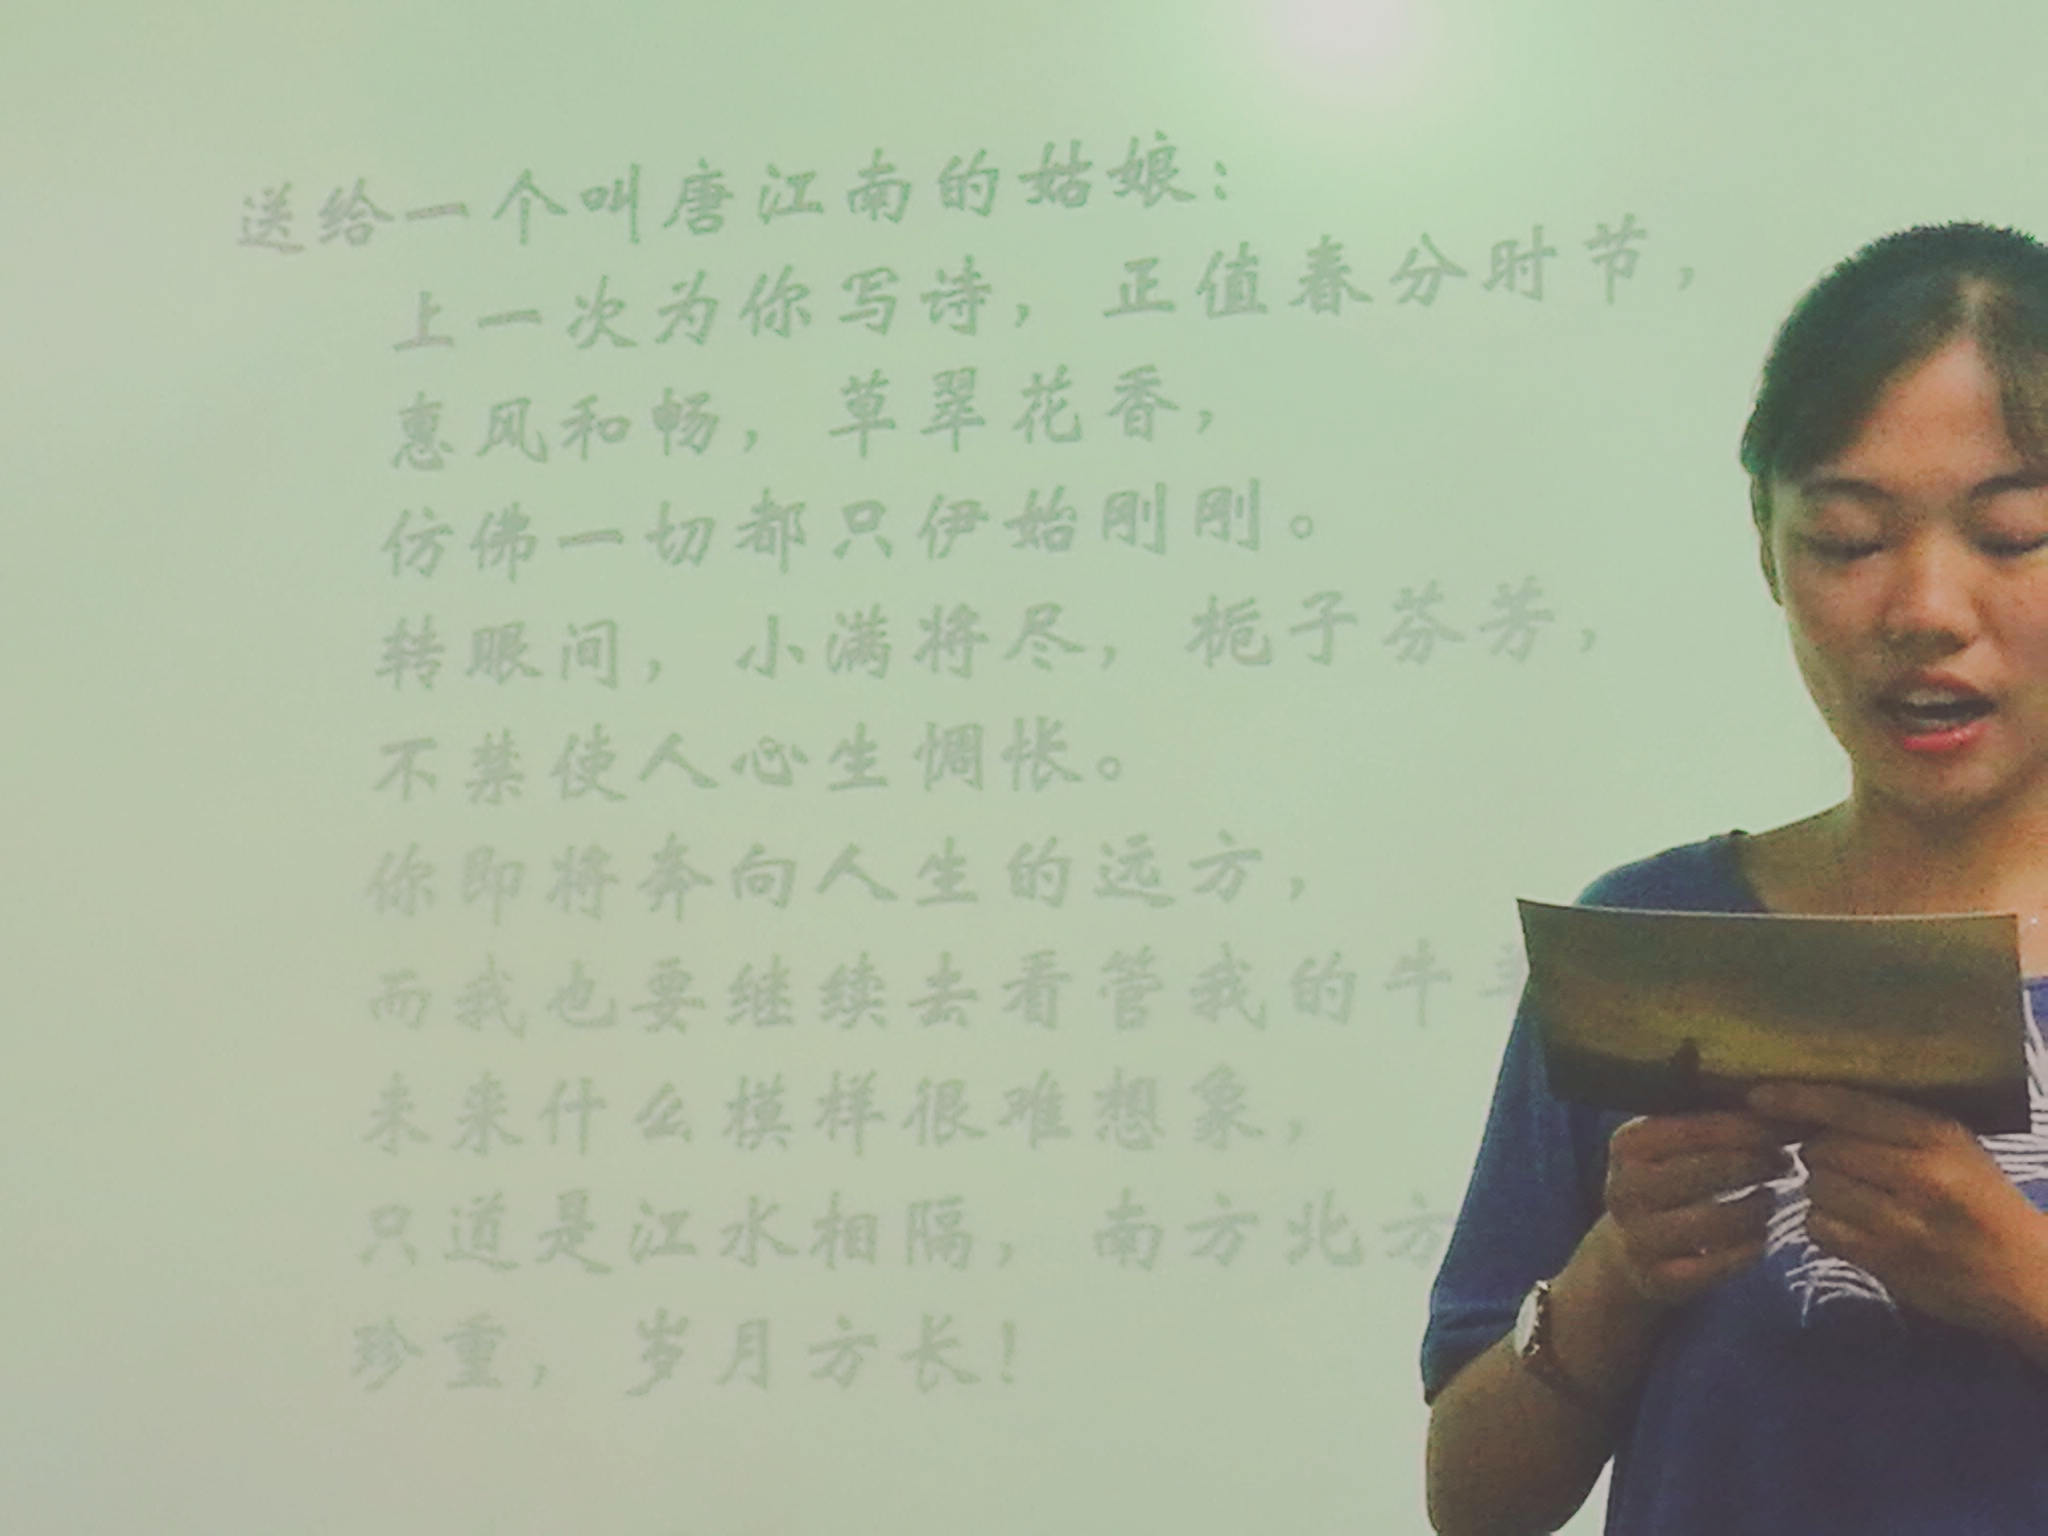 送给一个叫唐江南的姑娘：
上一次为你写诗，正值春分时节，
惠风和畅，草翠花香，
仿佛一切都只伊始刚刚。
转眼间，小满将尽，栀子芬芳，
不禁使人心生惆怅。
你即将奔向人生的远方，
而我也要继续去看管我的牛
未来什么模样很难想象，
只道是江水相隔，南方北方
珍重，岁月方长！